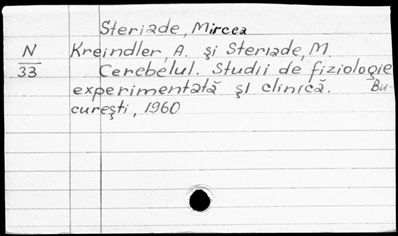 Steriade, Mircea
N
33
Kreindler, A. şi Steriade, M.
Cerebelul. Studii de fiziologie
experimentată şi clinică. Bu-
cureşti, 1960